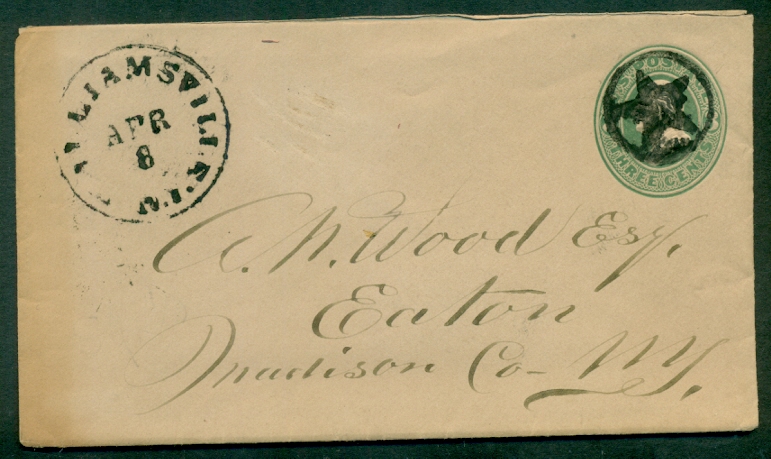 WILLIAMSVILLE N.Y.
APR
8
U.S. POSTAGE
THREE CENTS
A. N. Wood Esq.
Eaton
Madison Co— NY.